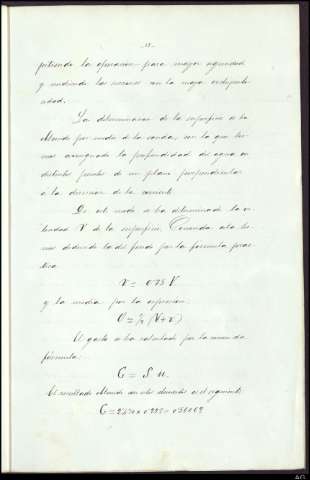 pitiendo la operacion para mayor seguridad
y midiendo las secciones con la mayor escrupulosidad
sidad.
La determinacion de la superficie se ha
obtenido por medio de la sonda, con la que hemos
mos averiguado la profundidad del agua en
distintos puntos de un plano perpendicular
a la direccion de la corriente.
De este modo se ha determinado la velocidad
locidad V de la superficie. Conocida esta hemos
mos deducido la del fondo por la formula practica
tica
v = 0'75 V
y la media por la expresion:
U = ½ (V + v)
El gasto se ha calculado por la conocida
fórmula:
G = S u.
El resultado obtenido
es el siguiente:
G =